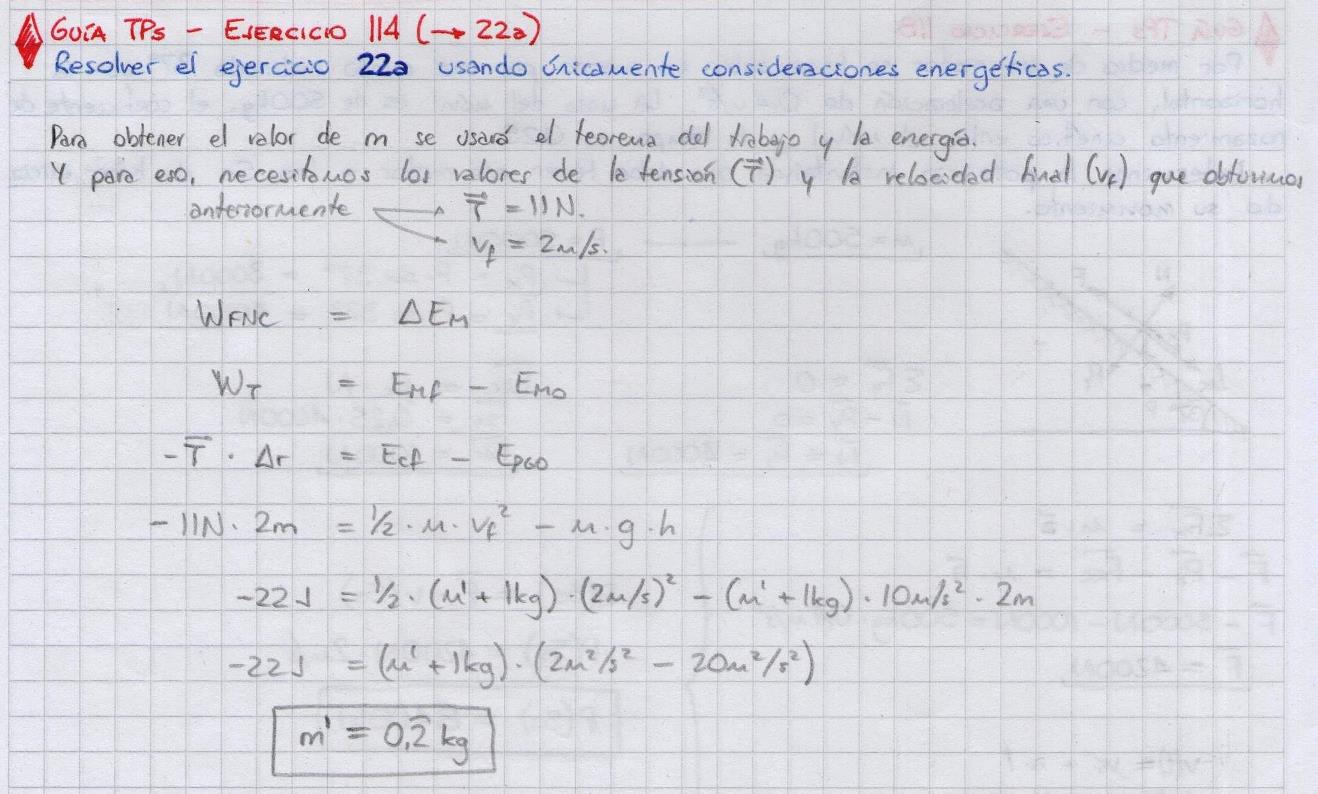 GUÍA TPs - EJERCICIO 114 (→ 22a)
Resolver el ejercicio 22a usando únicamente consideraciones energéticas.
Para obtener el valor de m se usará el teorema del trabajo y la energía.
Y para eso, necesitamos los valores de la tensión (T⃗) y la velocidad final (vf) que obtuvimos
anteriormente → T⃗ = 11N.
→ vf = 2m/s.
WFNC = ΔEM
WT = EMf - EM0
-T⃗ · Δr = Ecf - EPG0
-11N · 2m = 1/2 · m · vf² - m · g · h
-22J = 1/2 · (m' + 1kg) · (2m/s)² - (m' + 1kg) · 10m/s² · 2m
-22J = (m' + 1kg) · (2m²/s² - 20m²/s²)
m' = 0,2̂ kg